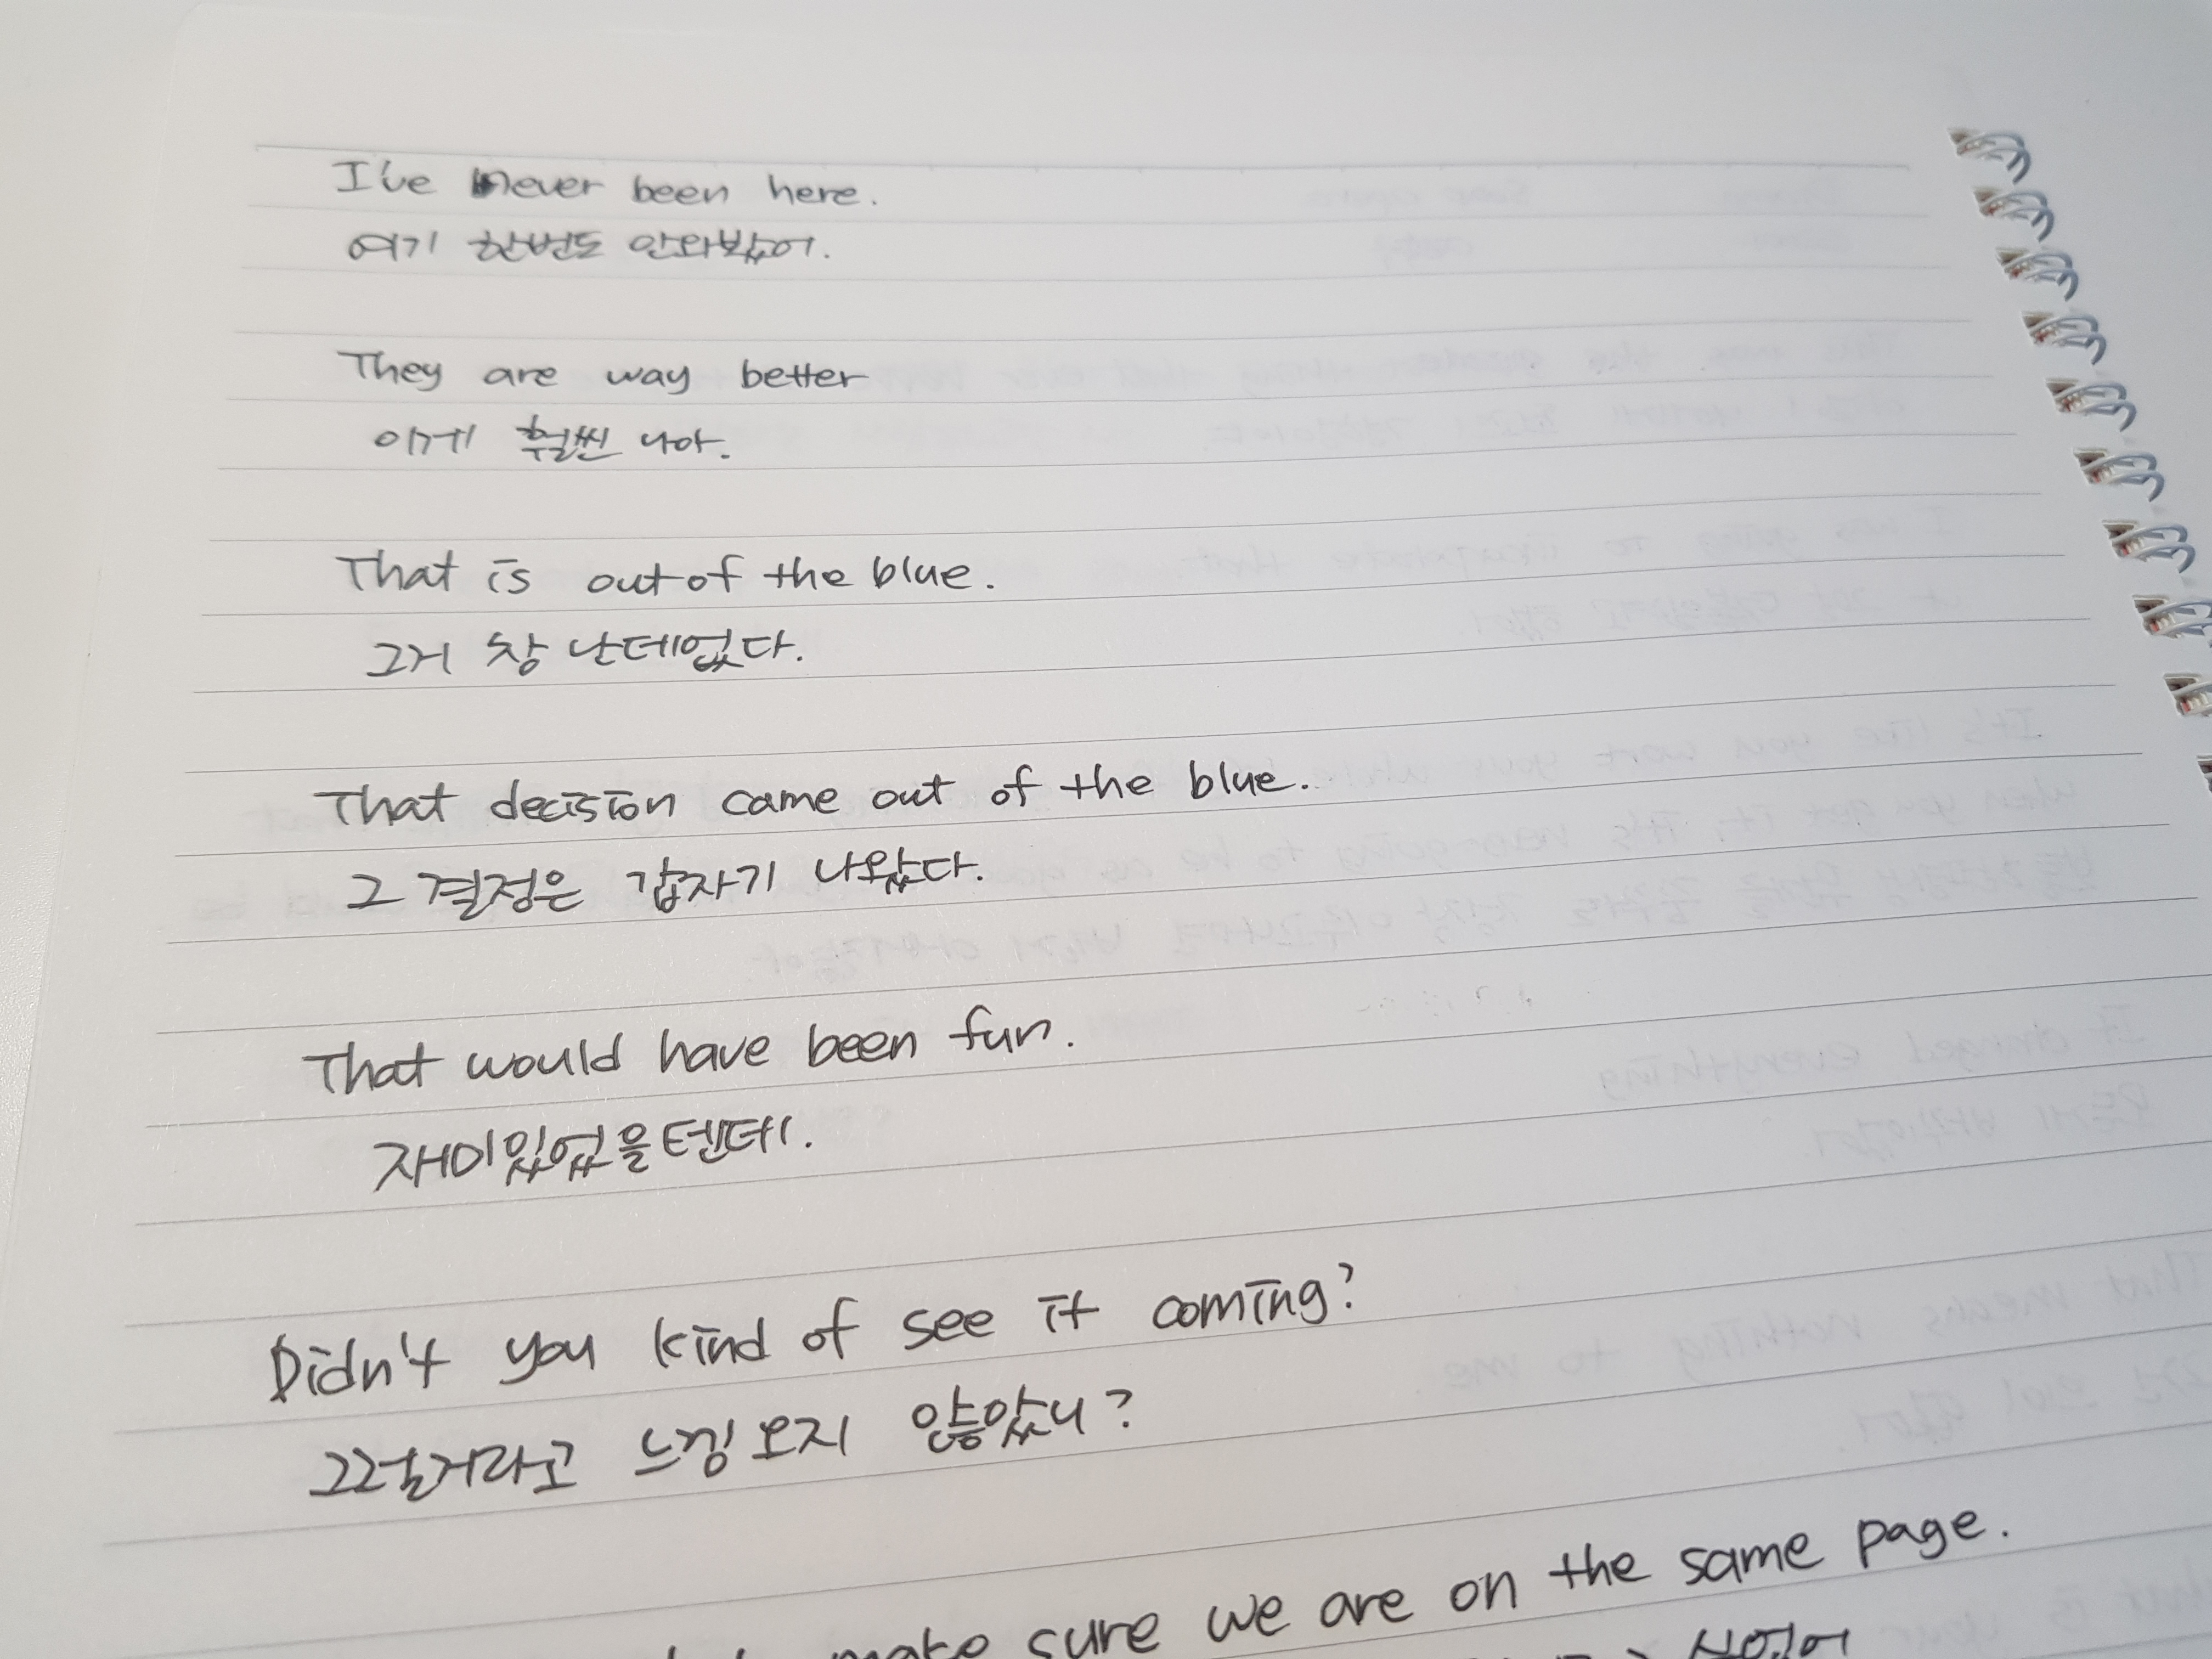 I've never been here.
여기 한번도 안와봤어.
They are way better
이게 훨씬 나아.
That is out of the blue.
그거 참 난데없다.
That decision came out of the blue.
그 결정은 갑자기 나왔다.
That would have been fun.
재미있었을텐데.
Didn't you kind of see it coming?
그럴거라고 느낌 오지 않았니?
make sure we are on the same page.
싶었어